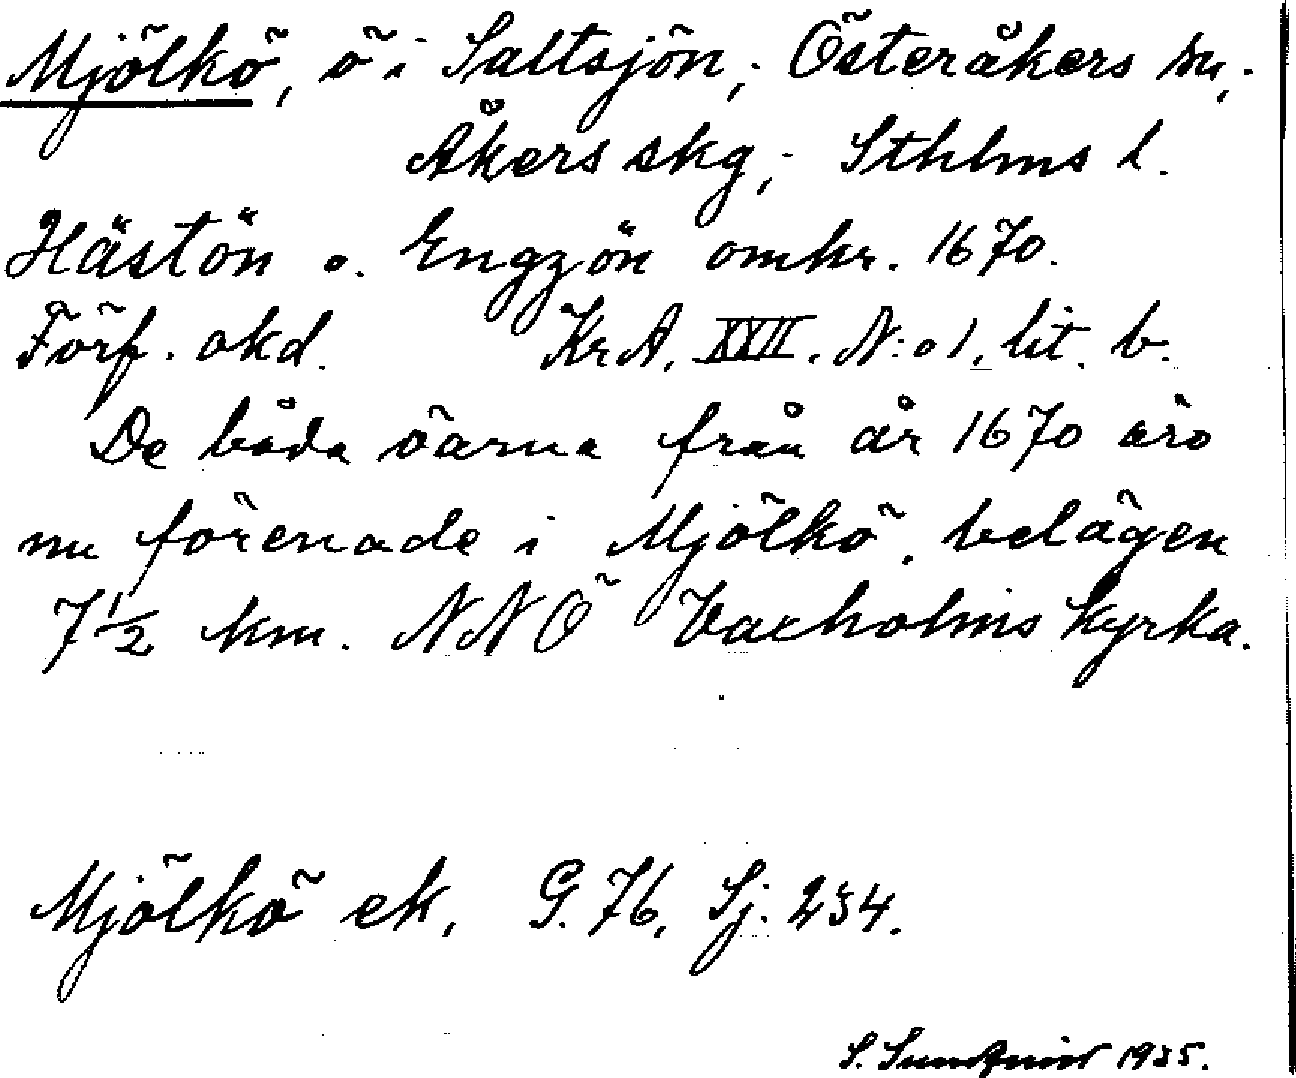 Mjölkö, ö i Saltsjön, Österåkers sn,
Åkers skg, Sthlms l.
Hästön o. Engzön omkr. 1670.
Förf. okd. Kr A. XVII. N:o 1. lit. b.
De båda öarna från år 1670 äro
nu förenade i Mjölkö, belägen
7 1/2 km. NNÖ Vaxholms kyrka.
Mjölkö ek. G. 76. Sj. 234.
S. Sundqvist 1935.